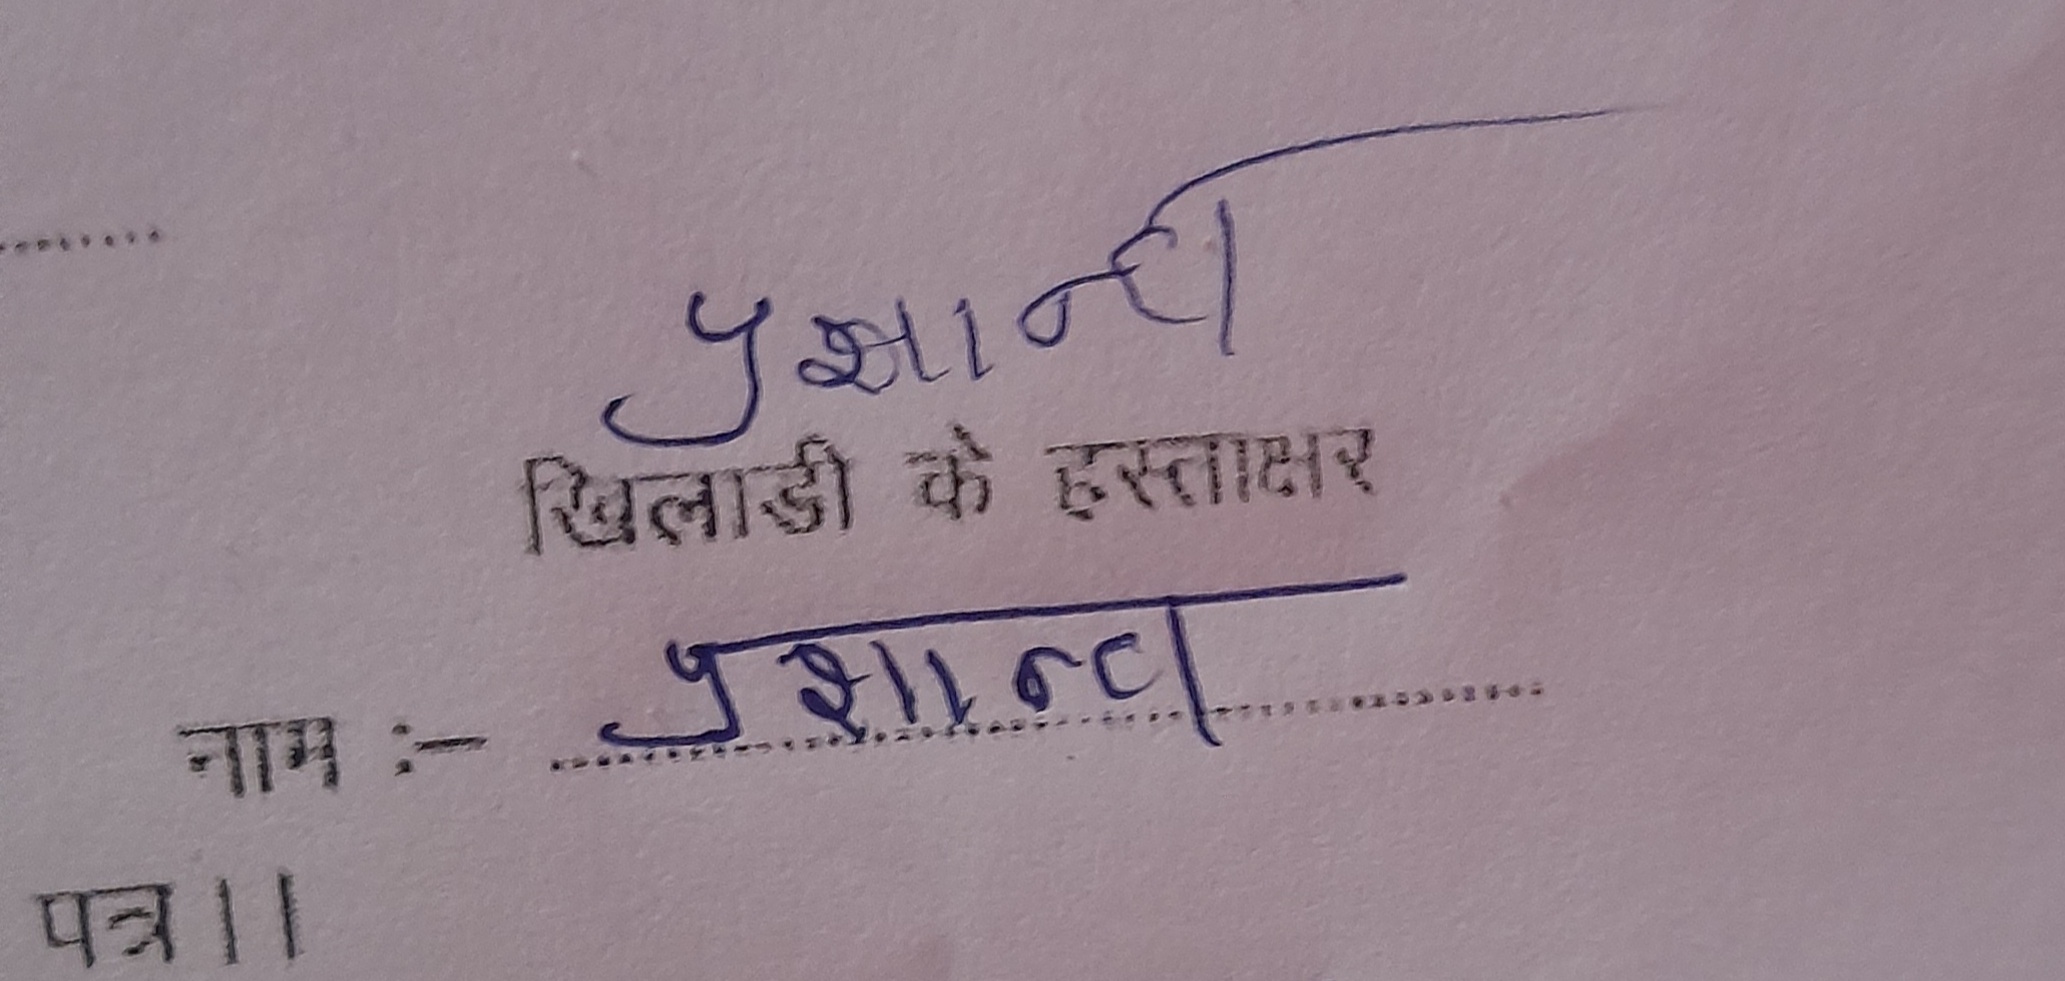 प्रशान्त
खिलाडी के हस्ताक्षर
नाम :- प्रशान्त
पत्र ।।